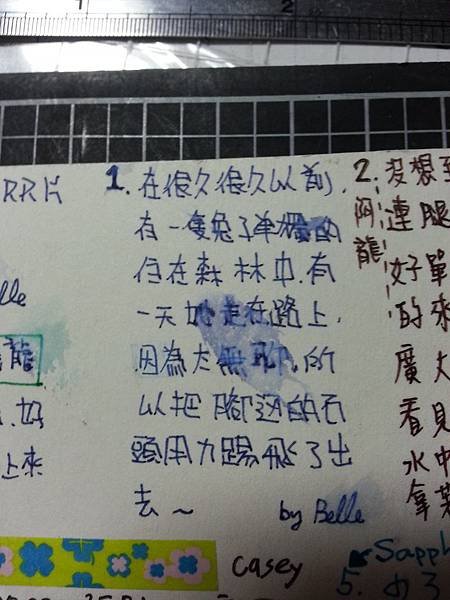 2
RRK
1. 在很久很久以前,
有一隻兔子单獨的
住在森林中.有
一天她走在路上,
因為太無聊,所
以把腳边的石
頭用力踢飛了出
去~
by Belle
lle
龍
.好
上來
2. 沒想到
阿龍
連腿
好單
的來
廣大
看見
水中
拿著
casey
Sapph
5. めろ